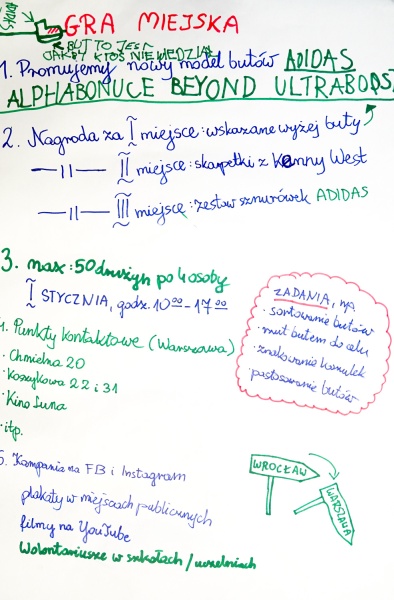 ADIDAS
GRA MIEJSKA
BUT TO JEST
JAKBY KTOŚ NIE WIEDZIAŁ
1. Promujemy nowy model butów ADIDAS
ALPHABONUCE BEYOND ULTRABOOST
2. Nagroda za I miejsce: wskazane wyżej buty
—||— II miejsce: skarpetki z Kanny West
—||— III miejsce: zestaw sznurówek ADIDAS
3. max: 50 drużyn po 4 osoby
I STYCZNIA, godz. 10 00 - 17 00
4. Punkty kontaktowe (Warszawa)
· Chmielna 20
· Koszykowa 22 i 31
· Kino Luna
· itp.
ZADANIA, np
· sortowanie butów
· rzut butem do celu
· znakowanie koszulek
· pastowanie butów
5. Kampania na FB i Instagram
plakaty w miejscach publicznych
filmy na YouTube
Wolontariusze w szkołach / uczelniach
WROCŁAW
WARSZAWA